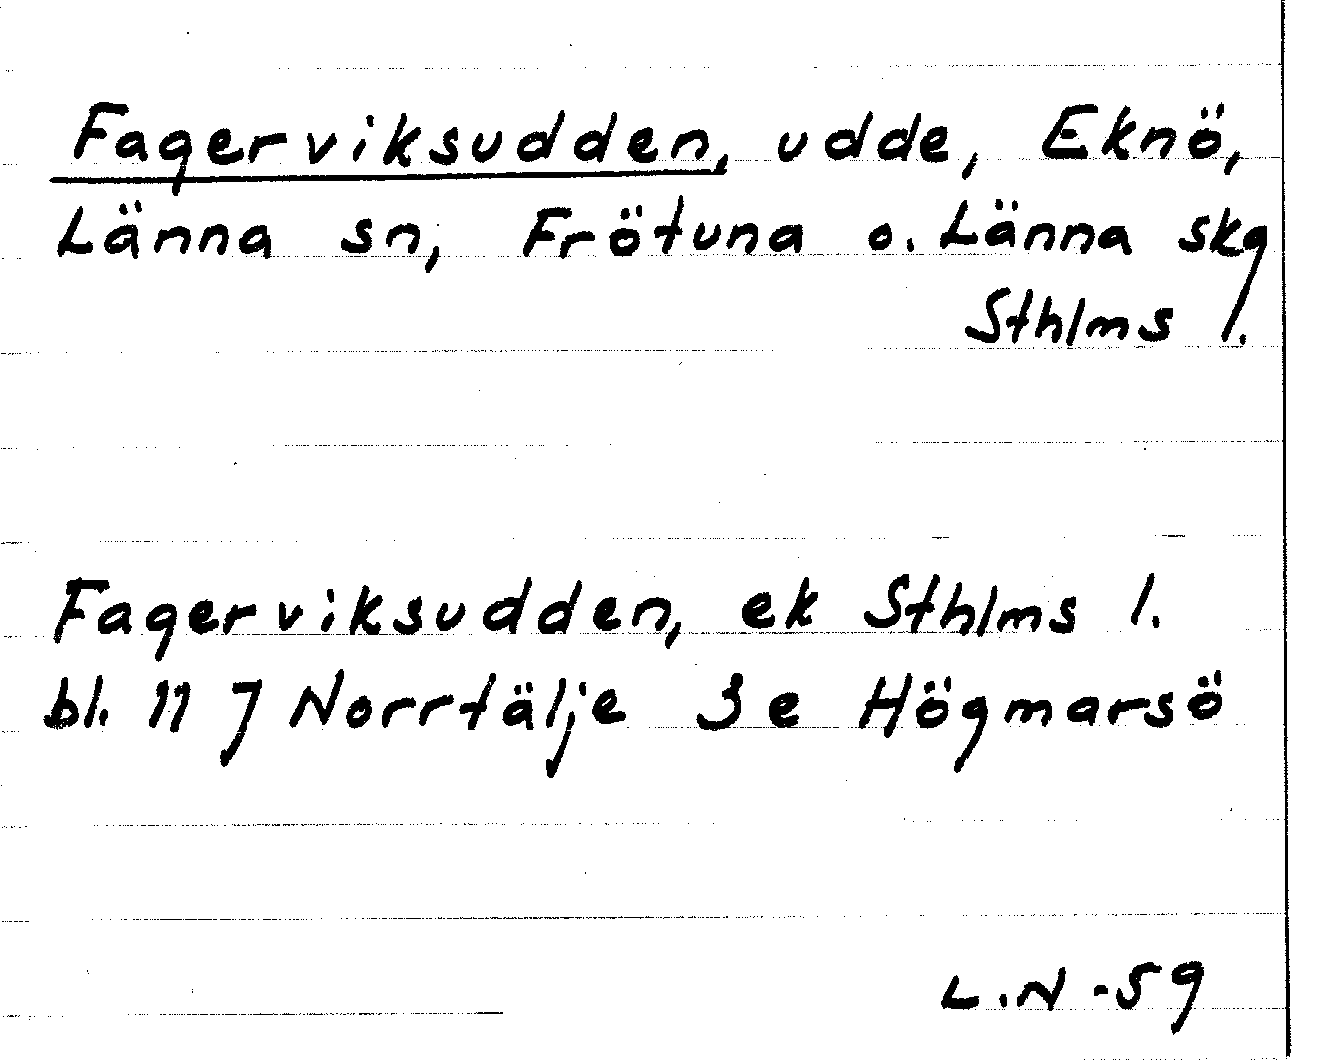 Fagerviksudden, udde, Eknö,
Länna sn, Frötuna o. Länna skg
Sthlms l.
Fagerviksudden, ek Sthlms l.
bl. 11 J Norrtälje 3e Högmarsö
L.N -59